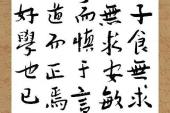 子食無求
無求安敏
而慎于言
道而正焉
好學也已